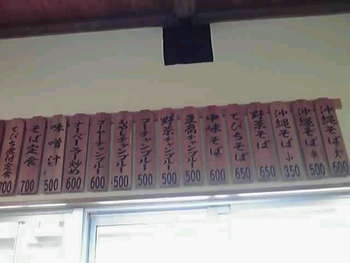 沖縄そば 大 600
沖縄そば 中 500
沖縄そば 小 350
野菜そば 650
てびちそば 650
中味そば 600
豆腐チャンプルー 500
野菜チャンプルー 500
ゴーヤーチャンプルー 500
チャンプルー 500
フーチャンプルー 600
ナーベーラー炒め 600
味噌汁 500
そば定食 700
てびち煮付定食 700